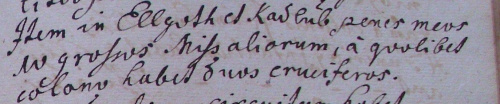 Item in Ellgoth et Kadlub penes meos
10 grossos Missaliorum, à quolibet
colono habet duos cruciferos.
habet